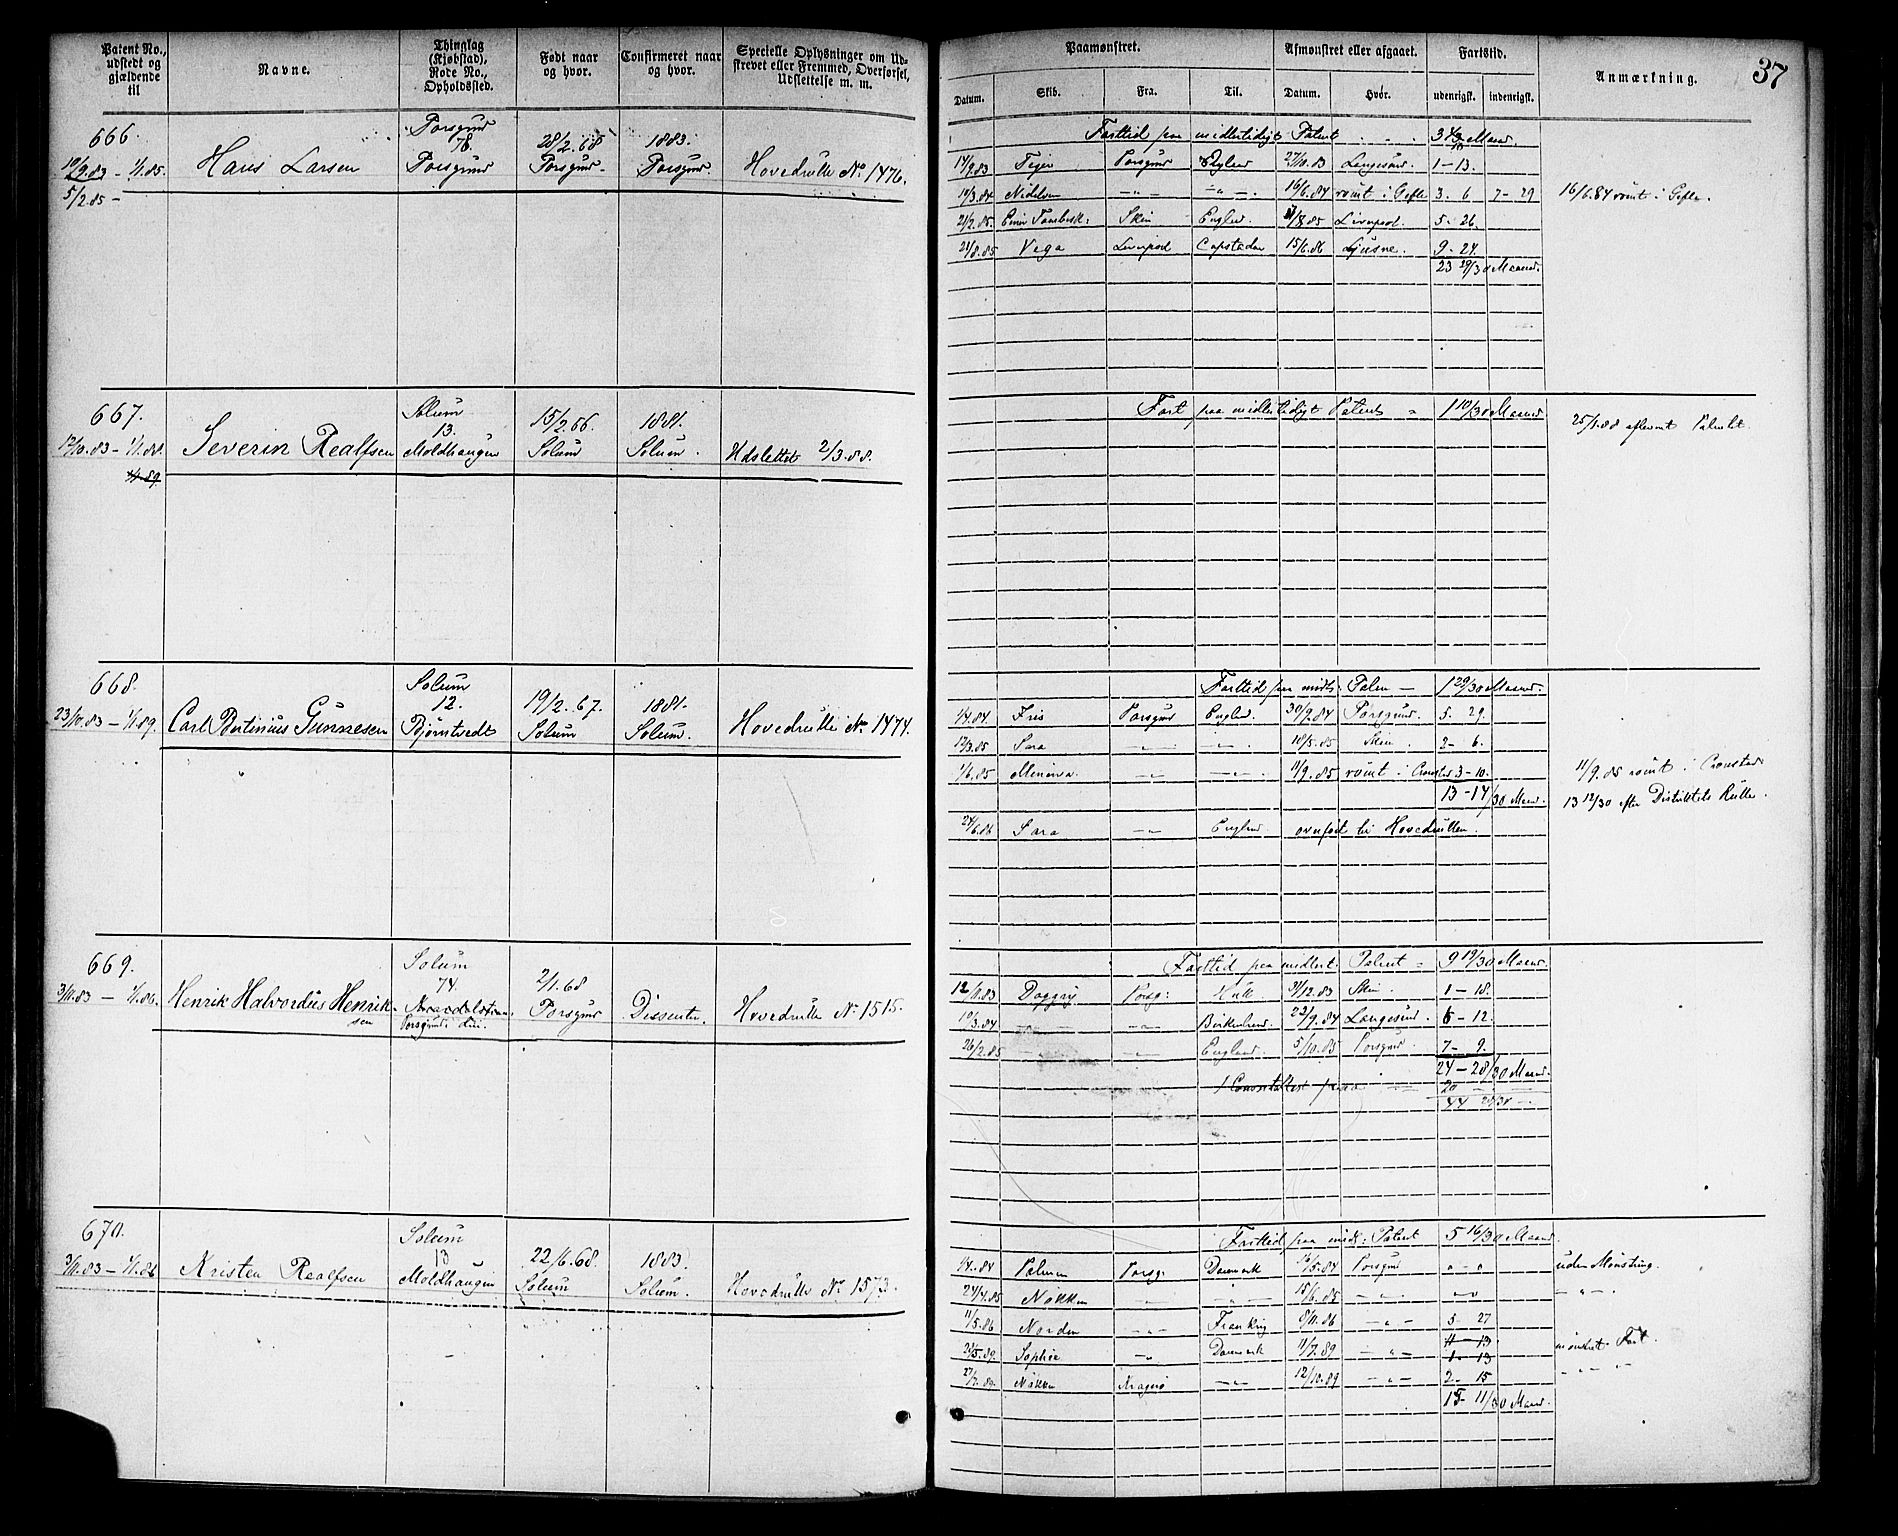 37
Patent No., udstedt og gjældende til
Navne.
Thinglag (Kjøbstad), Rode No., Opholdssted.
Født naar og hvor.
Confirmeret naar og hvor.
Specielle Oplysninger om Udskrevet eller Fremmed, Overførsel, Udslettelse m. m.
Paamønstret.
Afmønstret eller afgaaet.
Fartstid.
Anmærkning.
Datum.
Skib.
Fra.
Til.
Datum.
Hvor.
udenrigsk.
indenrigsk.
666.
10/9.83 – 1/1.85.
5/2.85 –
Hans Larsen
Porsgrund
78.
Porsgrund
28/2.68
Porsgrund
1883.
Porsgrund.
Hovedrulle No 1476.
Farttid paa midlertidigt Patent
14/9.83 Tejo Porsgrund England 27/10.83 Langesund. 1 – 13.
19/3.84 Nidelven –"– –"– 16/6.84 rømt i Gefle 3. 6 7 – 29 16/6.84 rømt i Gefle.
21/2.85. Skien England. Liverpool. 5. 26.
21/8.85 Vega Liverpool Capstaden 15/6.86 Ljusne. 9 – 24.
23 29/30 Maaned.
667.
12/10.83 – 1/1.88.
1/1.89.
Severin Realfsen
Solum
13.
Moldhaugen
15/2.66.
Solum
1881.
Solum.
Udslettet 2/3.88.
Fart paa midlertidigt Patent " 1 10/30 Maaned
25/1.88 afleveret Patentet.
668.
23/10.83 – 1/1.89.
Carl Bertinius Gunnesen
Solum
12.
Bjørntvedt
19/2.67.
Solum
1881.
Solum.
Hovedrulle No 1474.
Farttid paa midl. Paten – 1 29/30 Maaned.
1/4.84. Fris Porsgrund England. 30/9.84 Porsgrund. 5. 29.
12/3.85 Sara –"– –"– 18/5.85 Skien. 2 – 6.
1/6.85 Minerva. –"– –"– 11/9.85 rømt i Cronstad 3 – 10. 11/9.85 rømt i Cronstad
13 – 14/30 Maaned. 13 12/30 efter Distriktets Rulle.
24/6.86 Sara –"– England overført til Hovedrullen.
669.
3/11.83 – 1/1.86.
Henrik Halvordus Henriksen
Solum
74.
2/1.68
Porsgrund
Dissenter.
Hovedrulle No 1515.
Farttid paa midlert. Patent " 9 19/30 Maaned.
12/11.83 Daggry Porsg: Hull 31/12.83 Skien. 1 – 18.
10/3.84 –"– Birkenhead. 23/9.84 Langesund. 6 – 12.
26/2.85 –"– –"– England. 5/10.85 Porsgrund. 7 – 9.
24 – 28/30 Maaned.
20 –
44 28/30 –
670.
3/11.83 – 1/1.86
Kristen Realfsen
Solum
13
Moldhaugen
22/6.68.
Solum
1883.
Solum.
Hovedrulle No 1573.
Farttid paa midl: Patent 5 16/30 Maaned.
1/4.84 Palmen Porsg: Danmark 16/5.84 Porsgrund " – " uden Mønstring.
24/4.85 Nøkken –"– –"– 15/6.85 –"– –"– –"–
11/5.86 Norden –"– Frankrig 8/11.86 –"– 5 27
Sophie –"– Danmark 11/7.89 –"– 11 – 13 mønstret Fart.
1 – 13
Nøkken Kragerø –"– 12/10.89 –"– 2 – 15 –"–
15 11/30 Maaned.